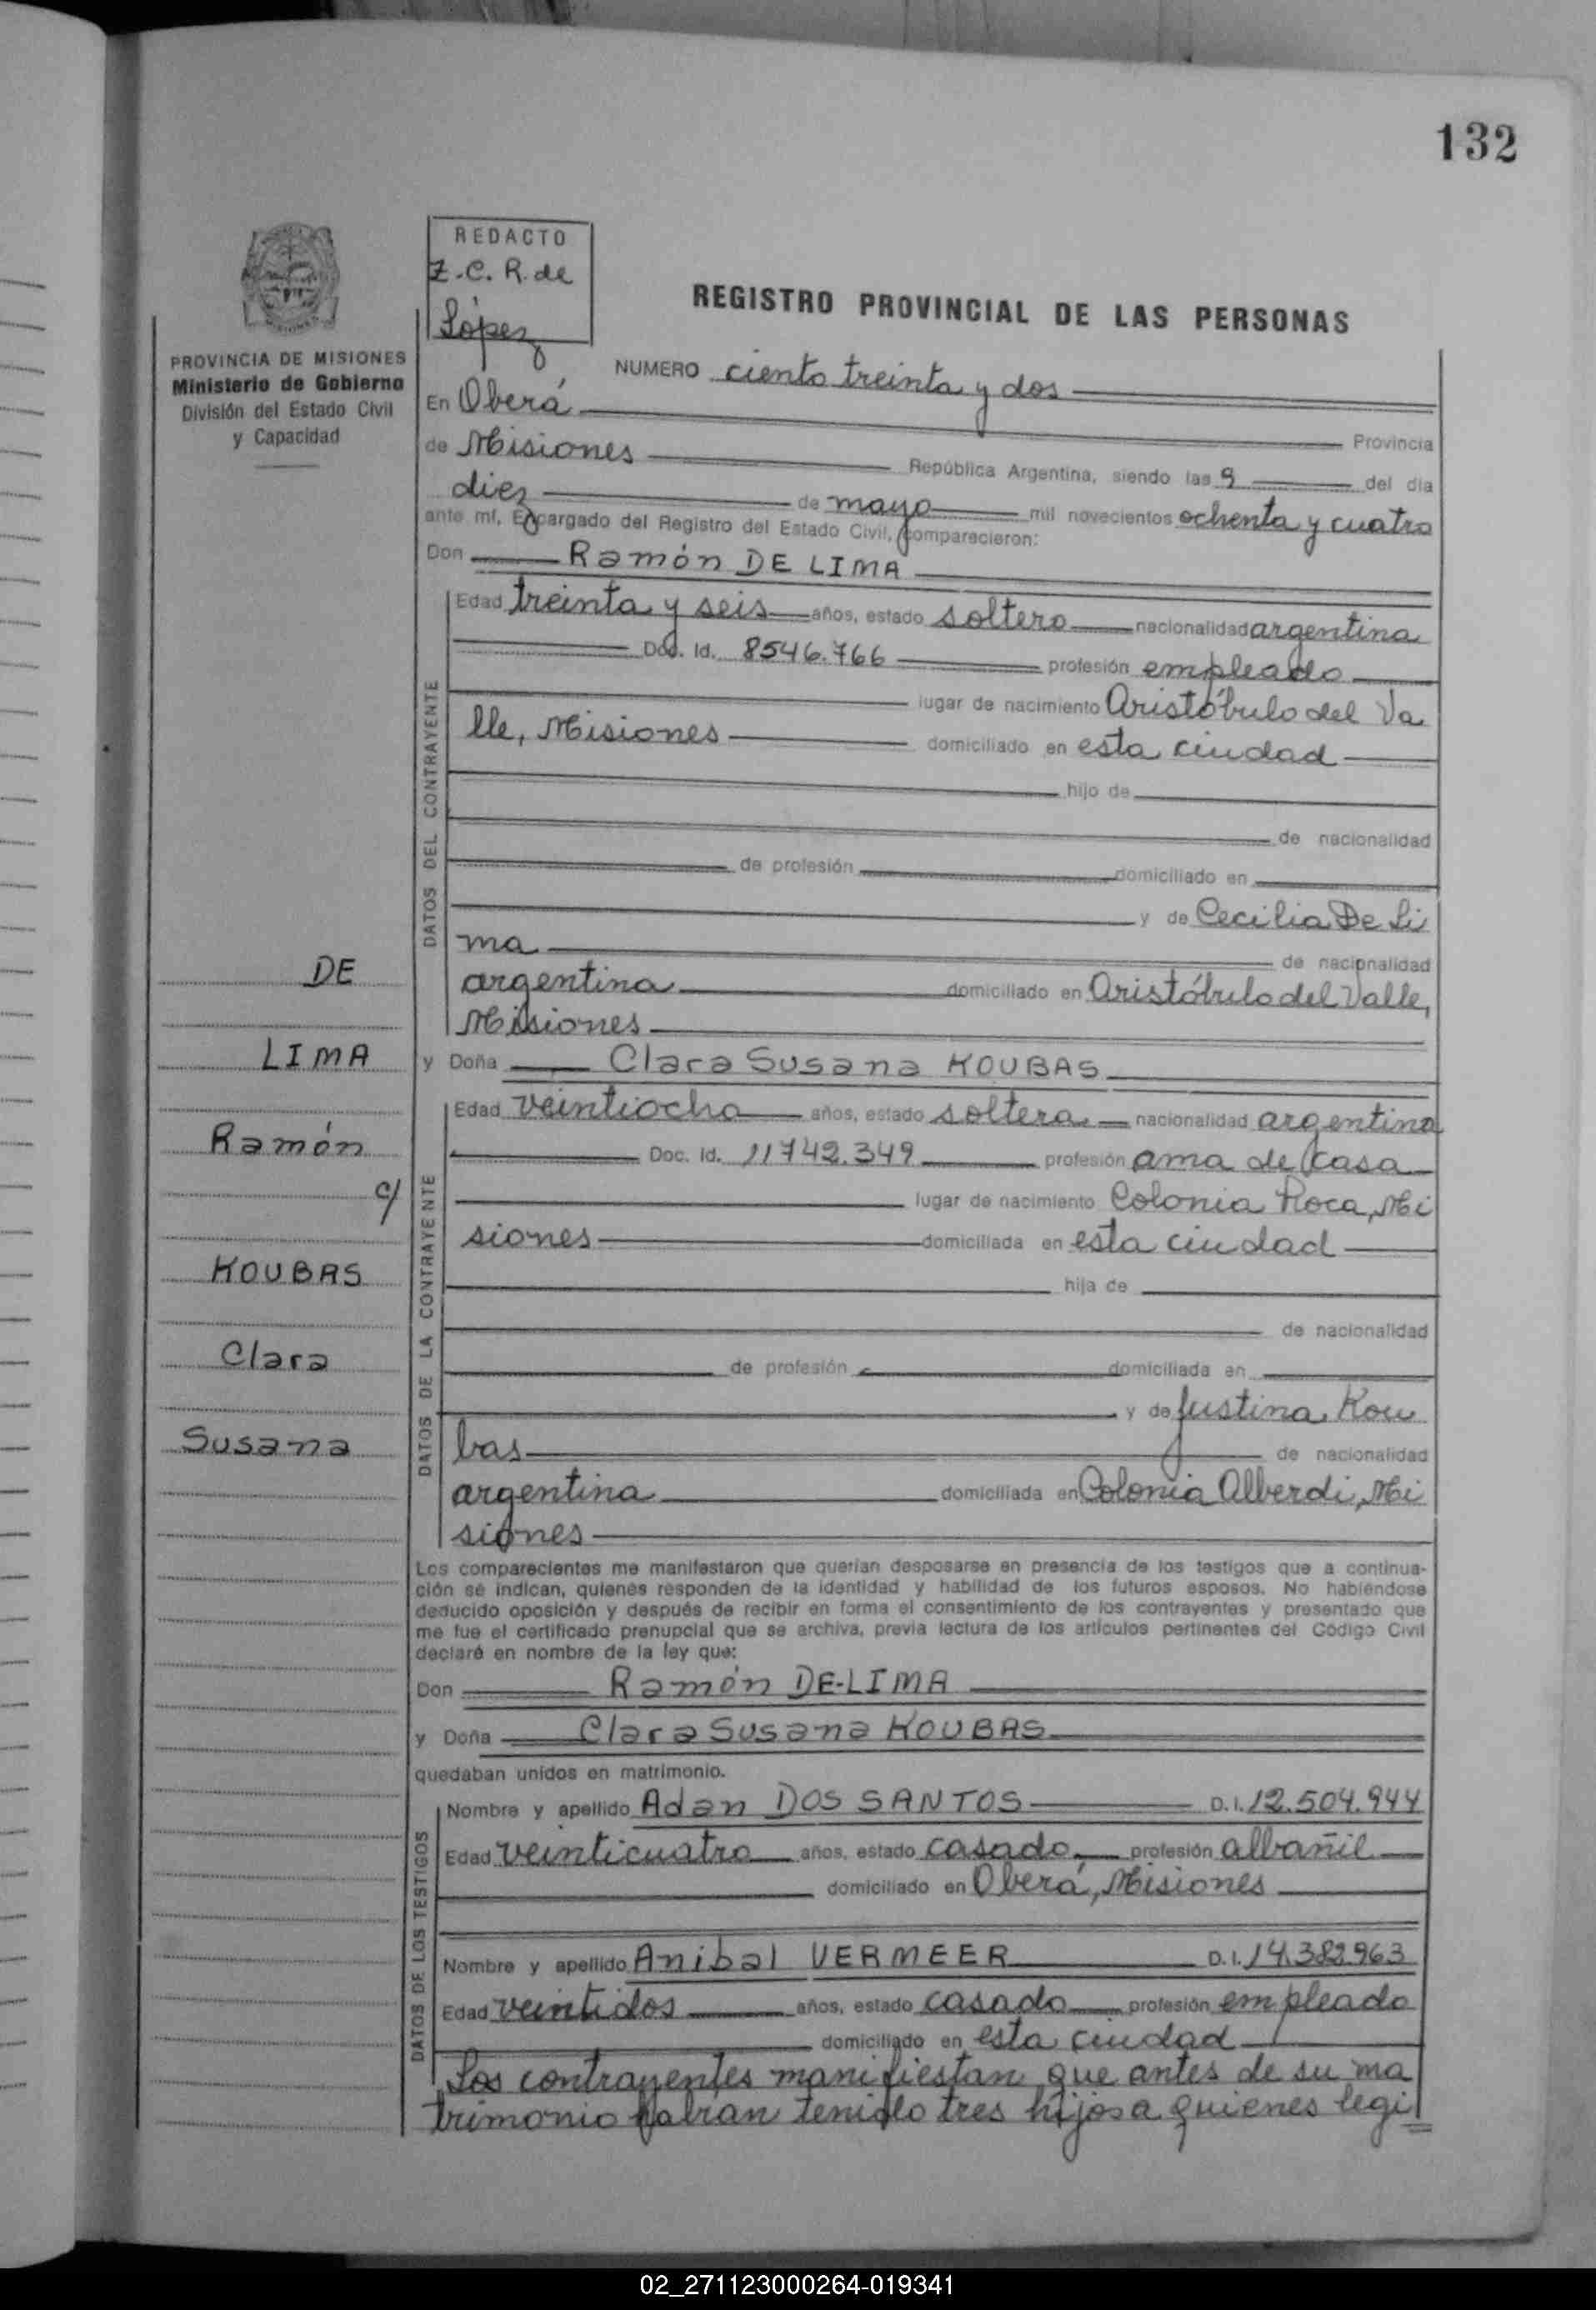 132
REDACTO
Z.C.R. de
López
REGISTRO PROVINCIAL DE LAS PERSONAS
PROVINCIA DE MISIONES
Ministerio de Gobierno
División del Estado Civil
y Capacidad
NUMERO ciento treinta y dos
En Oberá Provincia
de Misiones República Argentina, siendo las 9 del día
diez de mayo mil novecientos ochenta y cuatro
ante mí, Encargado del Registro del Estado Civil, comparecieron:
Don Ramón DE LIMA
DATOS DEL CONTRAYENTE
Edad treinta y seis años, estado soltero nacionalidad argentina
Doc. Id. 8546.766 profesión empleado
lugar de nacimiento Aristóbulo del Va
lle, Misiones domiciliado en esta ciudad
hijo de
de nacionalidad
de profesión domiciliado en
y de Cecilia De Li
ma de nacionalidad
argentina domiciliado en Aristóbulo del Valle,
Misiones
y Doña Clara Susana KOUBAS
DATOS DE LA CONTRAYENTE
Edad veintiocho años, estado soltera nacionalidad argentina
Doc. Id. 11742.349 profesión ama de casa
lugar de nacimiento Colonia Roca, Mi
siones domiciliada en esta ciudad
hija de
de nacionalidad
de profesión domiciliada en
y de Justina Kou
bas de nacionalidad
argentina domiciliada en Colonia Alberdi, Mi
siones
DE
LIMA
Ramón
c/
KOUBAS
Clara
Susana
Los comparecientes me manifestaron que querían desposarse en presencia de los testigos que a continua-
ción se indican, quienes responden de la identidad y habilidad de los futuros esposos. No habiéndose
deducido oposición y después de recibir en forma el consentimiento de los contrayentes y presentado que
me fue el certificado prenupcial que se archiva, previa lectura de los artículos pertinentes del Código Civil
declaré en nombre de la ley que:
Don Ramón DE-LIMA
y Doña Clara Susana KOUBAS
quedaban unidos en matrimonio.
DATOS DE LOS TESTIGOS
Nombre y apellido Adan DOS SANTOS D.I. 12.504.944
Edad veinticuatro años, estado casado profesión albañil
domiciliado en Oberá, Misiones
Nombre y apellido Anibal VERMEER D.I. 14.382.963
Edad veintidos años, estado casado profesión empleado
domiciliado en esta ciudad
Los contrayentes manifiestan que antes de su ma
trimonio habian tenido tres hijos a quienes legi
02_271123000264-019341